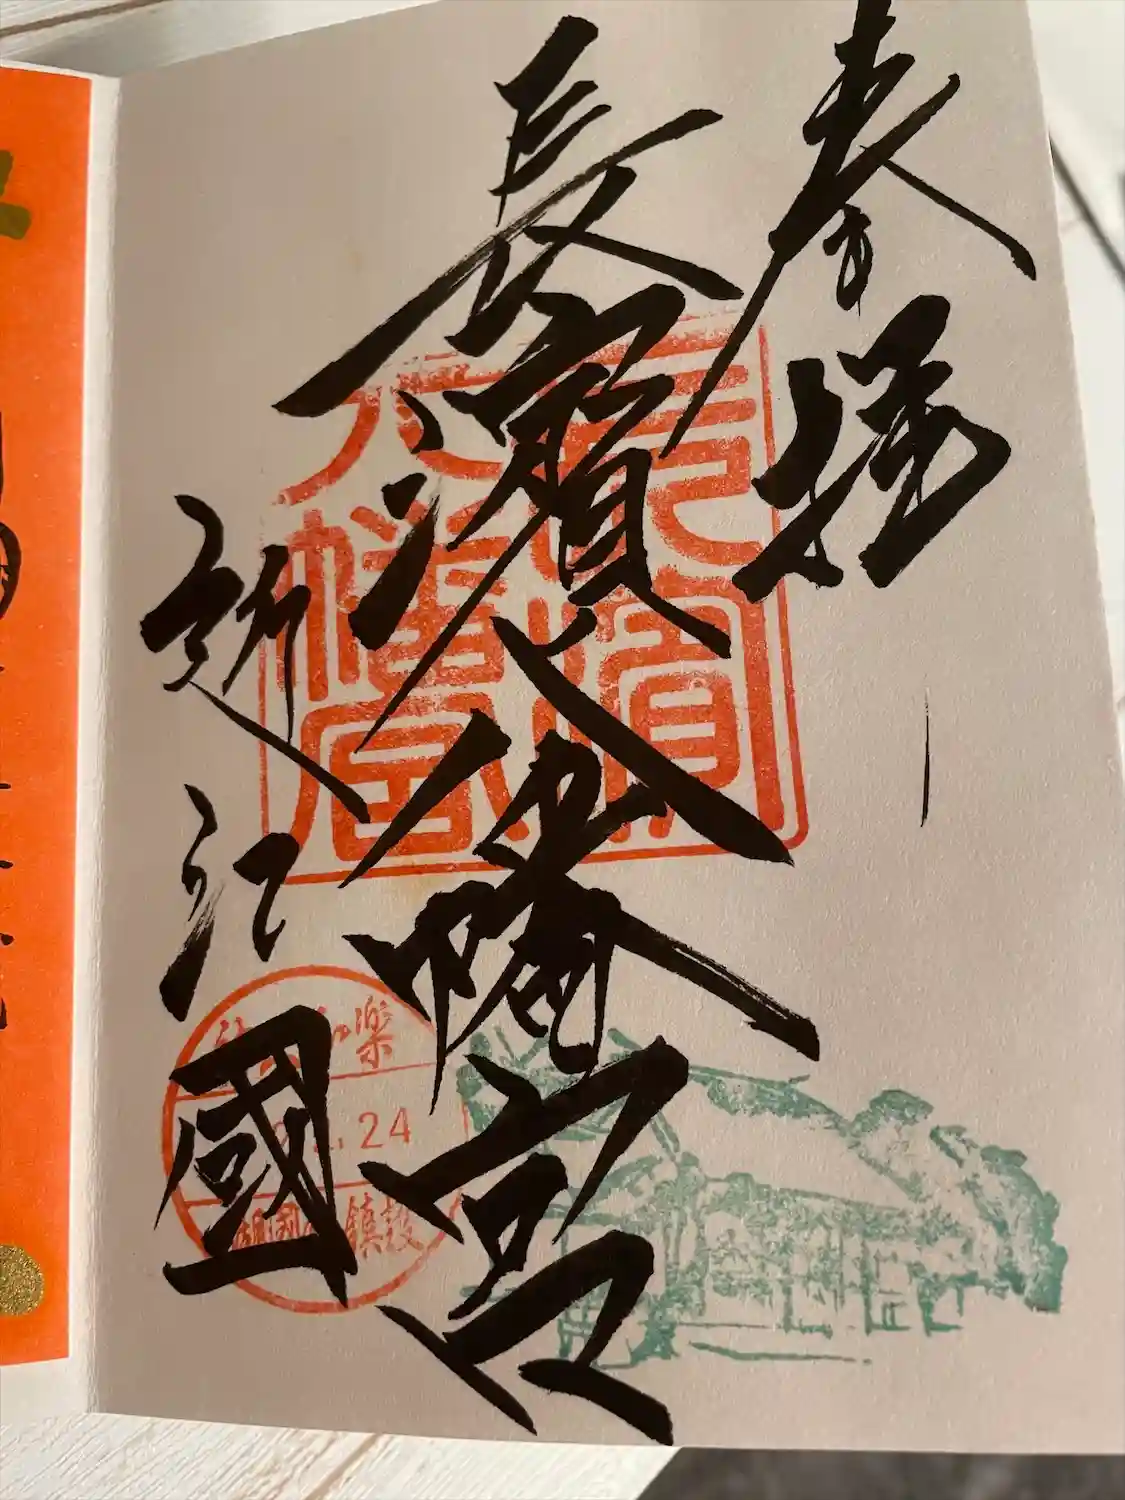 奉拝
長濱八幡宮
近江國
長濱
八幡宮
和楽
.24
國
鎮護